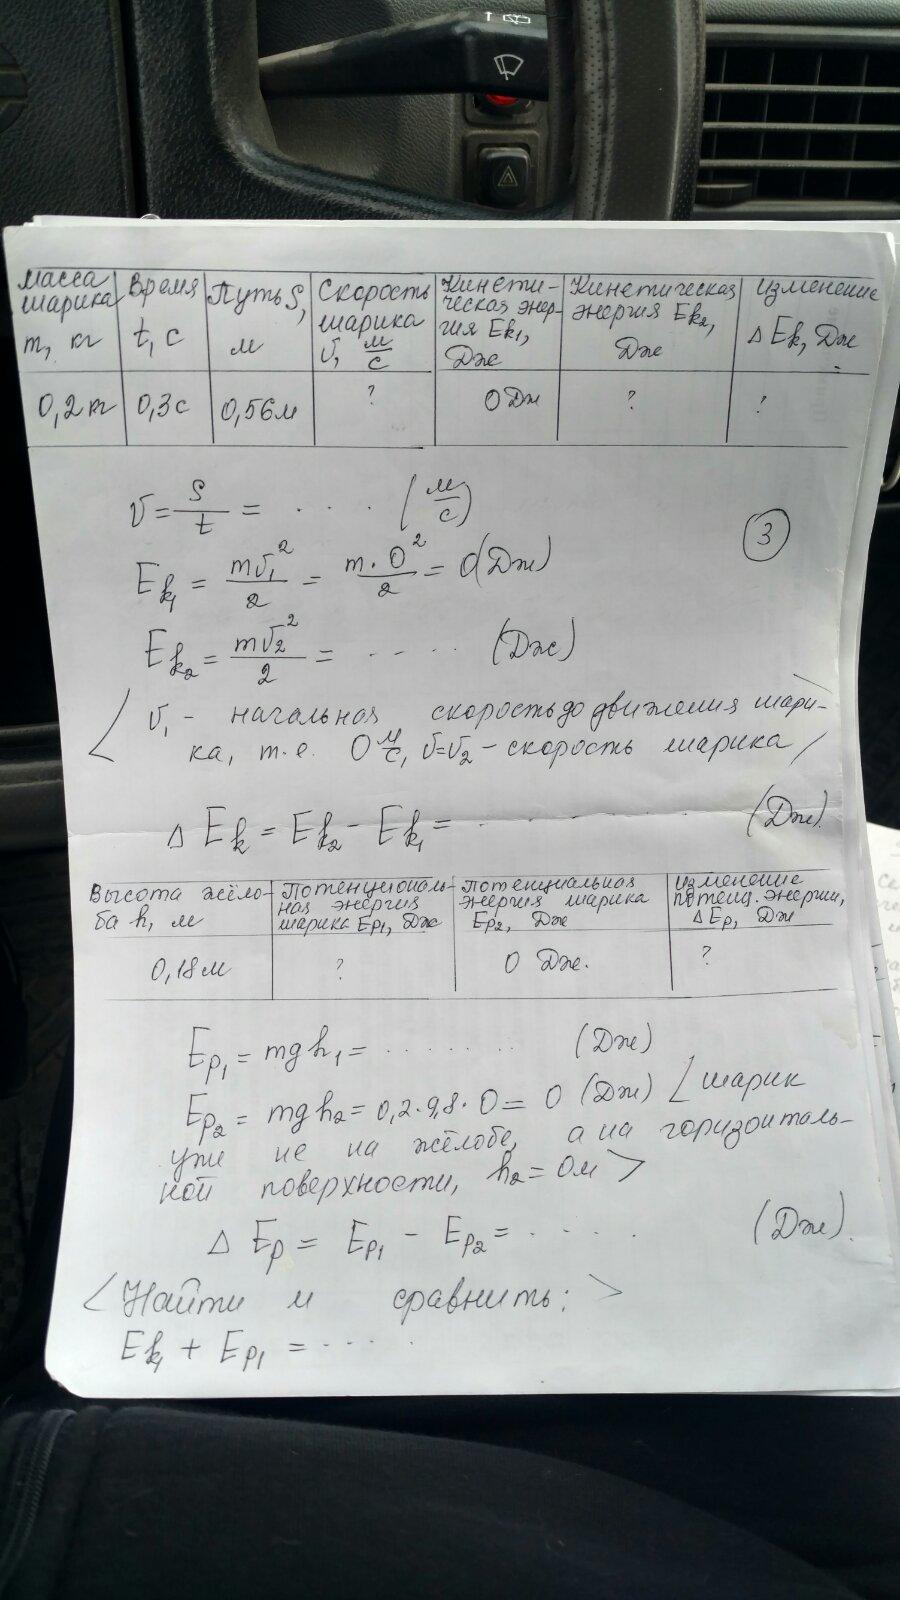 Масса шарика m, кг | Время t, с | Путь S, м | Скорость шарика v, м/с | Кинетическая энергия Ek1, Дж | Кинетическая энергия Ek2, Дж | Изменение Δ Ek, Дж
0,2 кг | 0,3 с | 0,56 м | ? | 0 Дж | ? | ?
v = S/t = . . . . (м/с)
3
Ek1 = mv1²/2 = m·0²/2 = 0 (Дж)
Ek2 = mv2²/2 = . . . . . (Дж)
< v1 - начальная скорость до движения шари-
ка, т.е. 0 м/с, v=v2 - скорость шарика /
Δ Ek = Ek2 - Ek1 = . . . . . . (Дж).
Высота жёло-ба h, м | Потенциональ-ная энергия шарика Ep1, Дж | Потенциальная энергия шарика Ep2, Дж | Изменение потенц. энергии, Δ Ep, Дж
0,18 м | ? | 0 Дж. | ?
Ep1 = mgh1 = . . . . . . . (Дж)
Ep2 = mgh2 = 0,2·9,8·0 = 0 (Дж) < шарик
уже не на жёлобе, а на горизонталь-
ной поверхности, h2 = 0м >
Δ Ep = Ep1 - Ep2 = . . . . . (Дж).
< Найти и сравнить: >
Ek1 + Ep1 = . . . . .